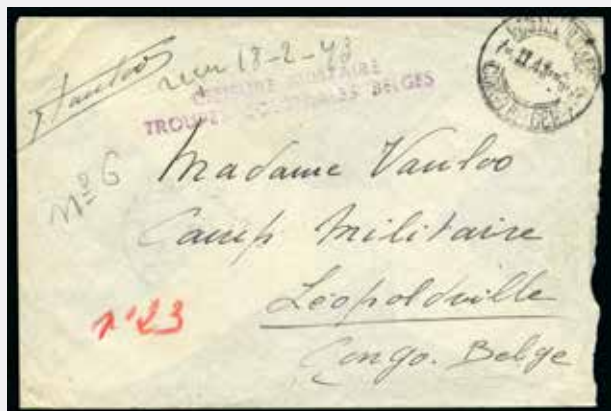 Vanloo
reçu 18-2-43
CENSURE MILITAIRE
TROUPES COLONIALES BELGES
N° 6
Madame Vanloo
Camp Militaire
Léopoldville
Congo. Belge
n° 23